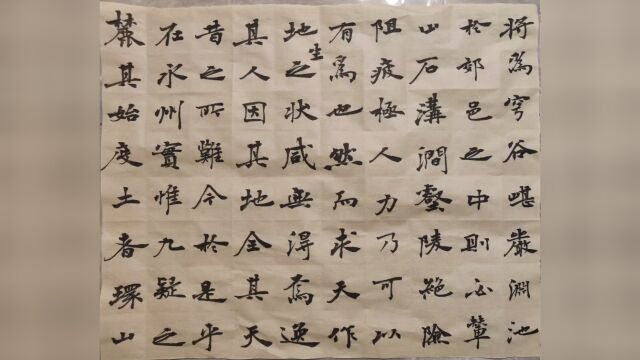 将為穹谷嵁巖淵池
扵郊邑之中則必輦
山石溝澗壑陵絶險
阻疲極人力乃可以
有為也然而求天作
地生之状咸無淂焉逸
其人因其地全其天
昔之所難今扵是乎
在永州實惟九疑之
麓其始度土者環山